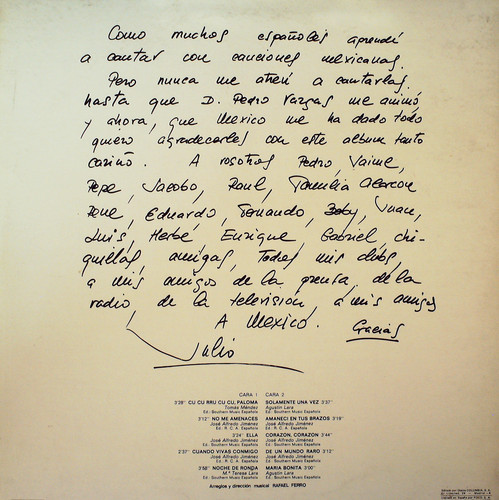 Como muchos españoles aprendí
a cantar con canciones mexicanas.
Pero nunca me atreví a cantarlas
hasta que D. Pedro Vargas me animó
y ahora, que Mexico me ha dado todo
quiero agradecerles con este album tanto
cariño. A vosotros Pedro, Jaime,
Pepe, Jacobo, Raul, Familia Alarcon
Rene, Eduardo, Fernando, Boby, Juan,
Luis, Herbé, Enrique, Gabriel, chi-
quillas, amigas, Todos mis clubs
a mis amigos de la prensa, de la
radio de la televisión, a mis amigos
A Mexico. Gracias
Julio
CARA 1 CARA 2
3'28" CU CU RRU CU CU, PALOMA SOLAMENTE UNA VEZ 3'37"
Tomás Méndez Agustín Lara
Ed.: Southern Music Española Ed.: Southern Music Española
3'12" NO ME AMENACES AMANECI EN TUS BRAZOS 3'19"
José Alfredo Jiménez José Alfredo Jiménez
Ed.: R. C. A. Española Ed.: R. C. A. Española
3'24" ELLA CORAZON, CORAZON 3'44"
José Alfredo Jiménez José Alfredo Jiménez
Ed.: Southern Music Española Ed.: R. C. A. Española
2'37" CUANDO VIVAS CONMIGO DE UN MUNDO RARO 3'12"
José Alfredo Jiménez José Alfredo Jiménez
Ed.: R. C. A. Española Ed.: Southern Music Española
3'58" NOCHE DE RONDA MARIA BONITA 3'00"
M.ª Teresa Lara Agustín Lara
Ed.: Southern Music Española Ed.: Southern Music Española
Arreglos y dirección musical RAFAEL FERRO